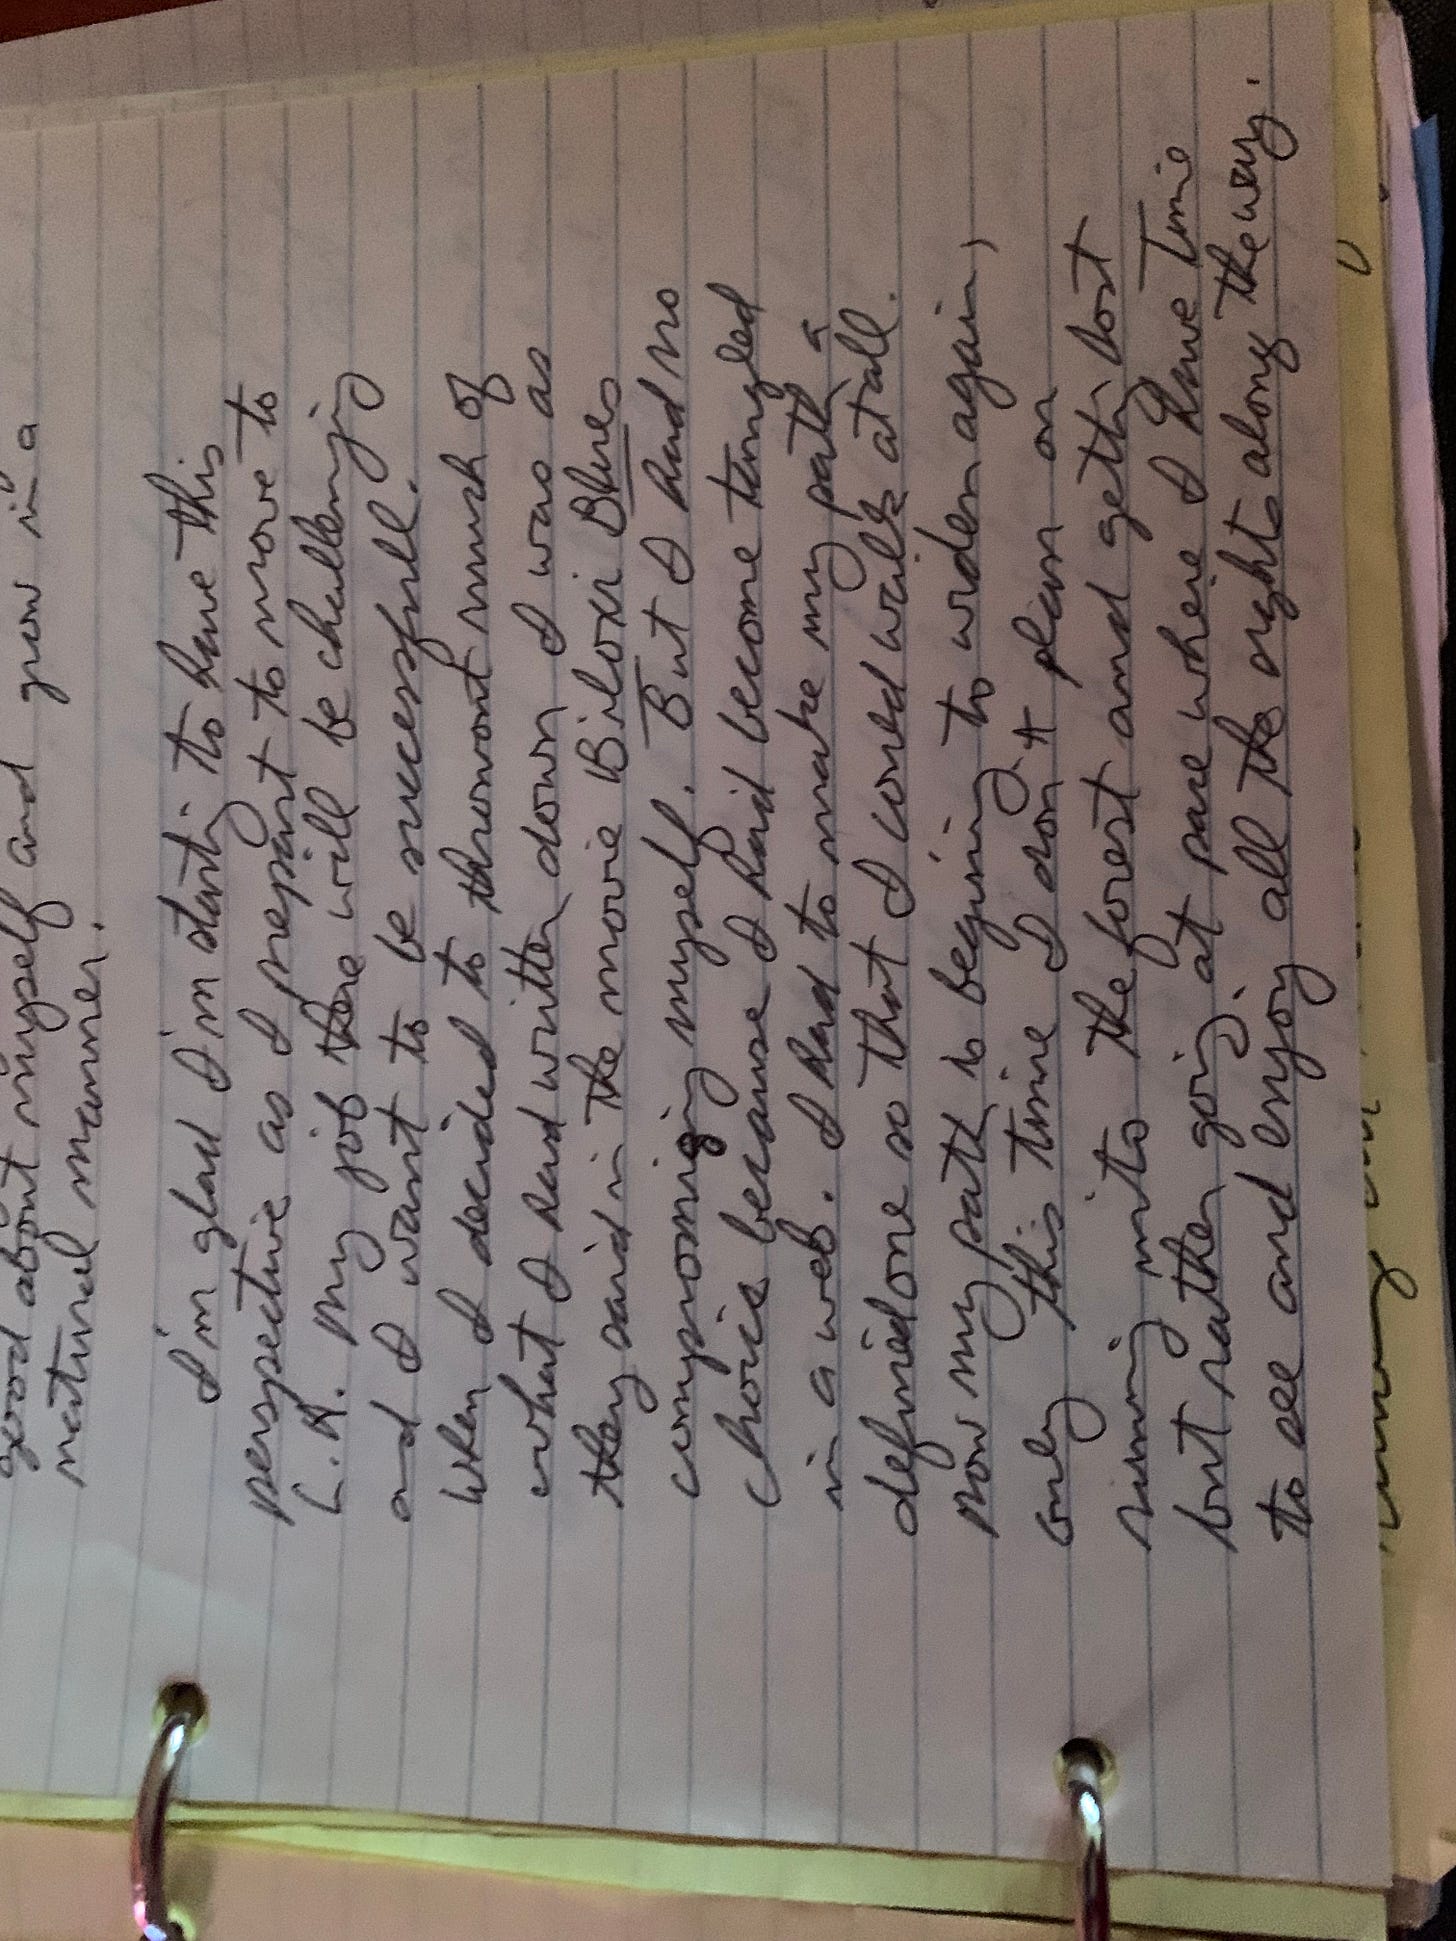 good about myself and grow in a
natural manner.
I'm glad I'm starting to have this
perspective as I prepart to move to
L.A. My job there will be challenging
and I want to be successfull.
When I decided to throwout much of
what I had written down I was as
they said in the movie Biloxi Blues
compromising myself. But I had no
choice because I had become tangled
in a web. I had to make my path a
defined one so that I could walk at all.
Now my path is beginning to widen again,
only this time I don't plan on
running into the forest and getting lost
but rather going at pace where I have Time
to see and enjoy all the sights along the way.